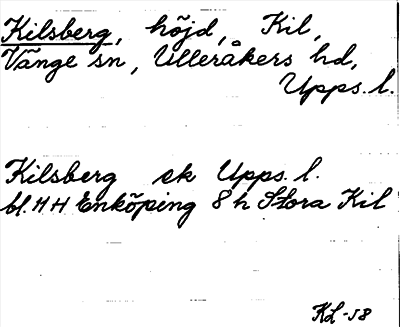 Kilsberg, höjd, Kil,
Vänge sn, Ulleråkers hd,
Upps. l.
Kilsberg ek Upps. l.
bl. HH Enköping 8 h Stora Kil
KL-58